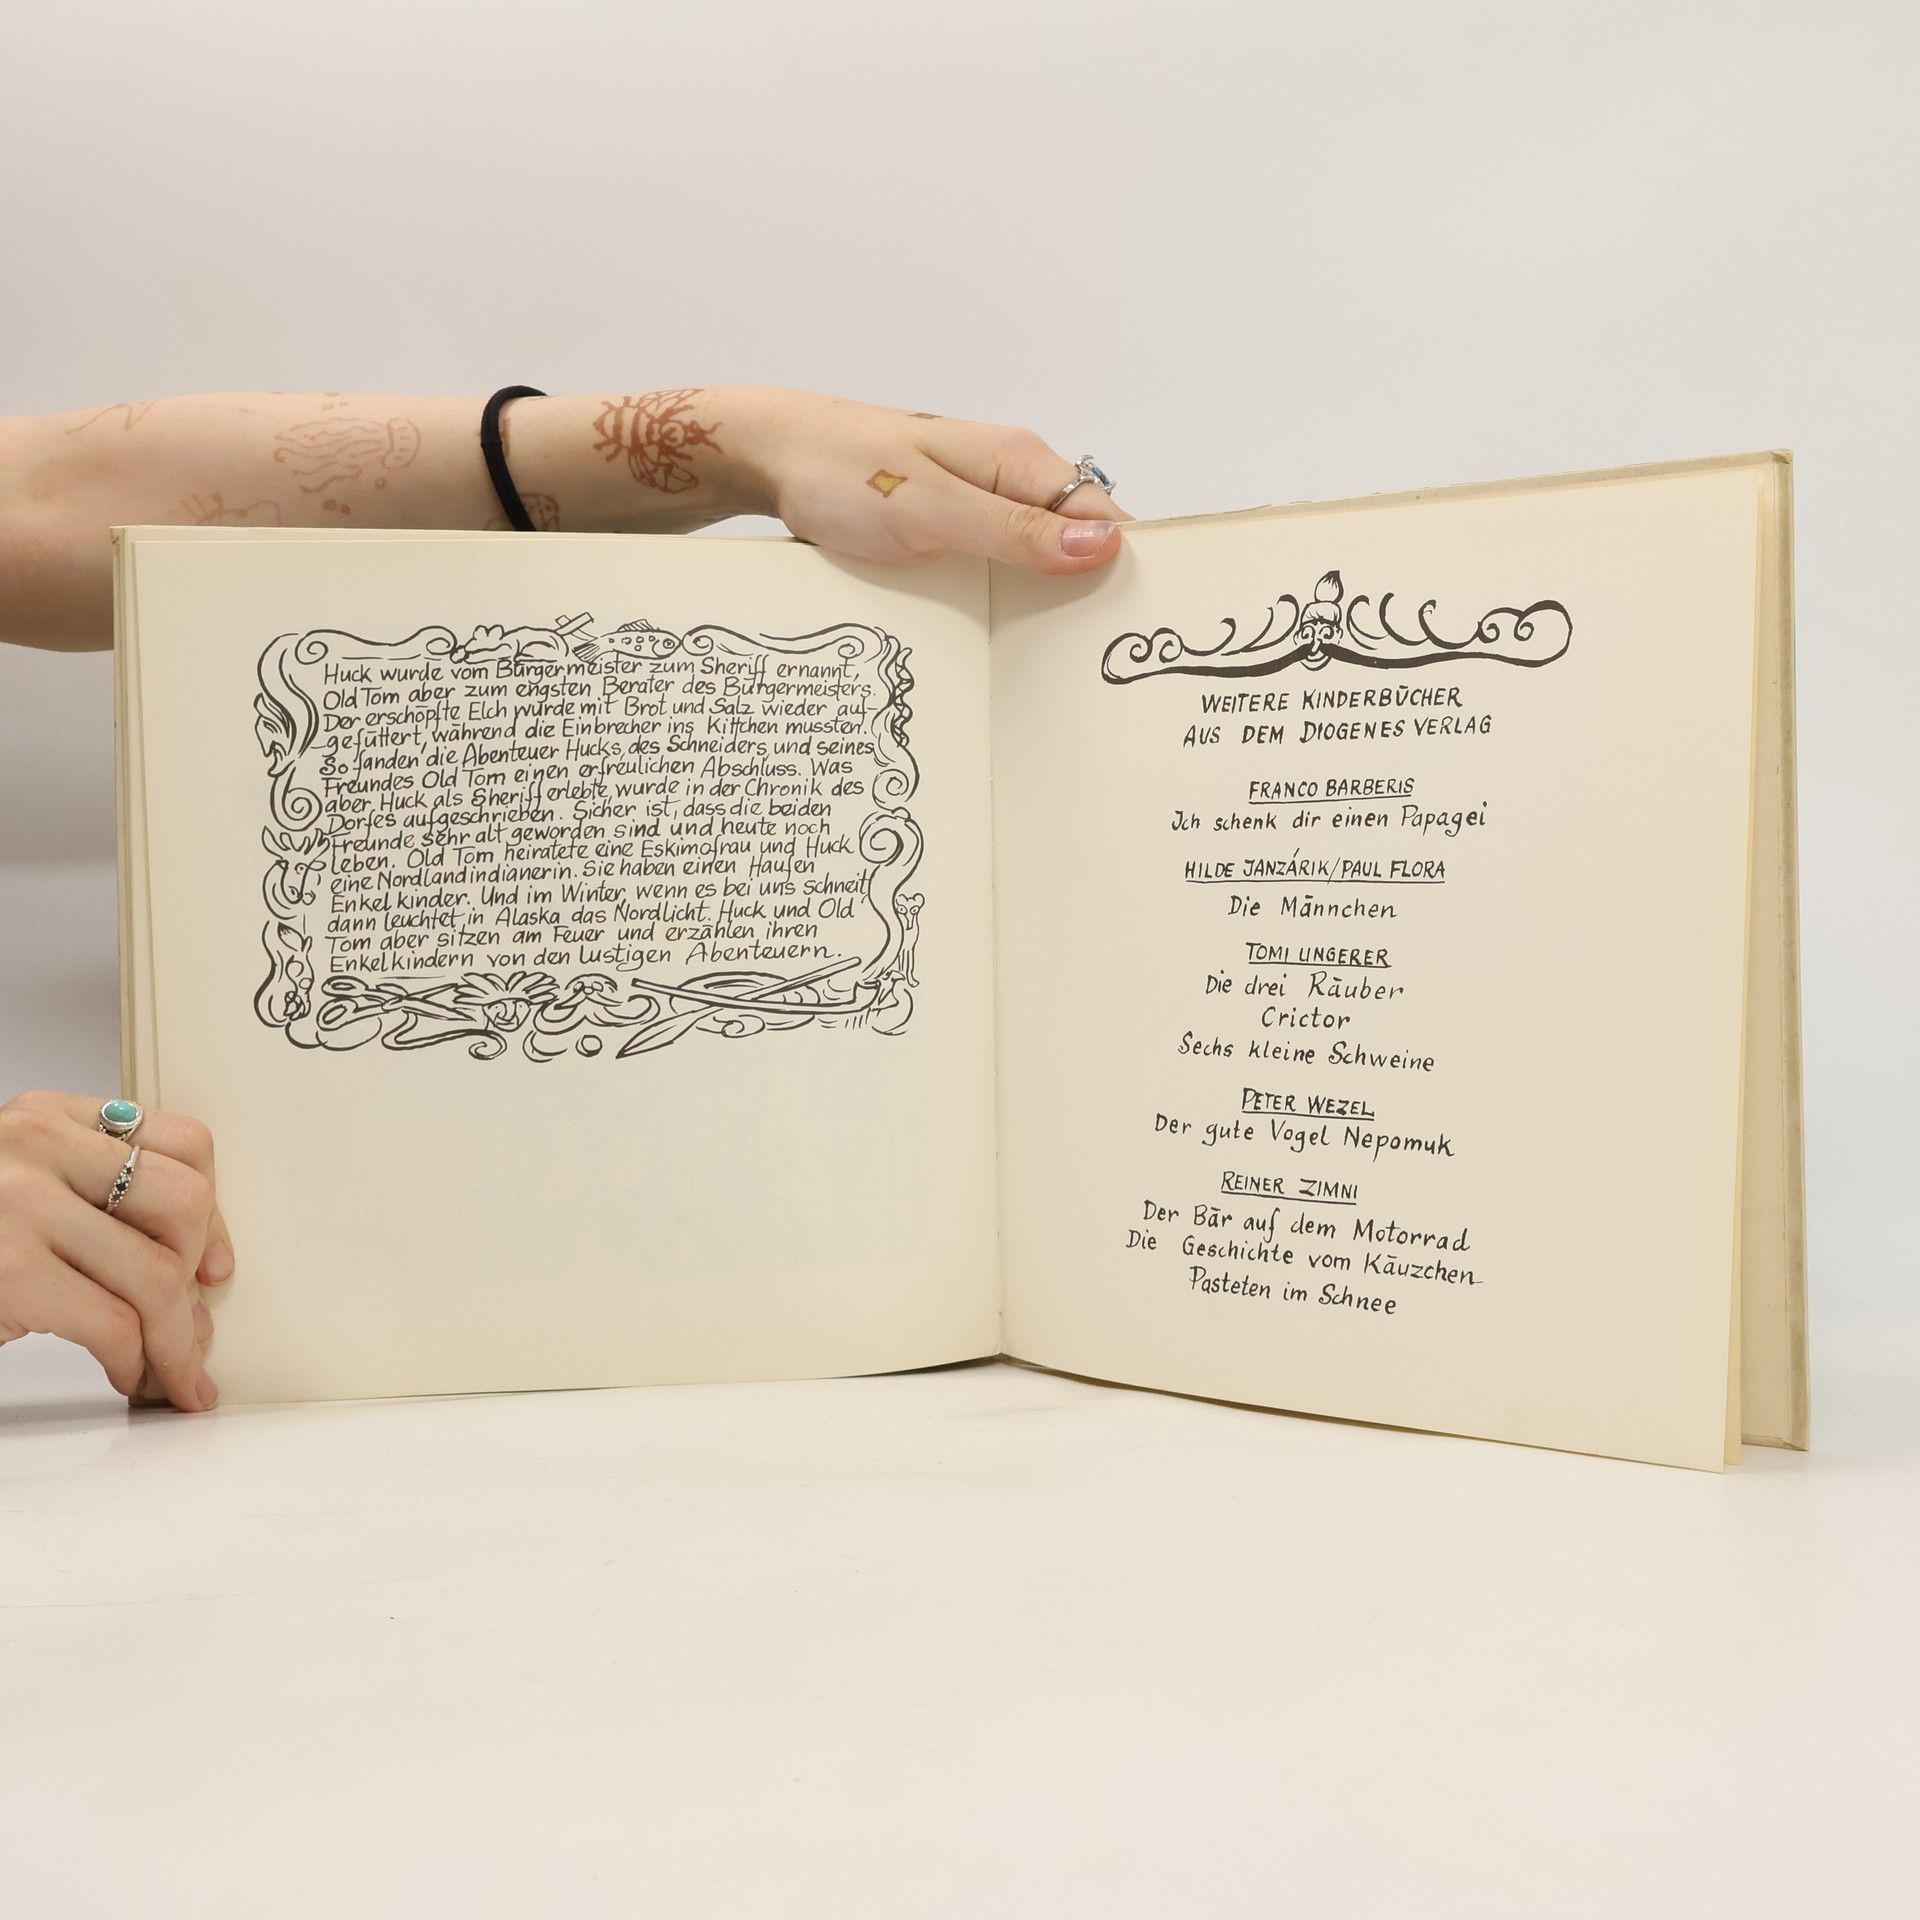 Huck wurde vom Bürgermeister zum Sheriff ernannt,
Old Tom aber zum engsten Berater des Bürgermeisters.
Der erschöpfte Elch wurde mit Brot und Salz wieder auf-
gefüttert, während die Einbrecher ins Kittchen mussten.
So fanden die Abenteuer Hucks, des Schneiders, und seines
Freundes Old Tom einen erfreulichen Abschluss. Was
aber Huck als Sheriff erlebte, wurde in der Chronik des
Dorfes aufgeschrieben. Sicher ist, dass die beiden
Freunde sehr alt geworden sind und heute noch
leben. Old Tom heiratete eine Eskimofrau und Huck
eine Nordlandindianerin. Sie haben einen Haufen
Enkelkinder. Und im Winter, wenn es bei uns schneit,
dann leuchtet in Alaska das Nordlicht. Huck und Old
Tom aber sitzen am Feuer und erzählen ihren
Enkelkindern von den lustigen Abenteuern.
WEITERE KINDERBÜCHER
AUS DEM DIOGENES VERLAG
FRANCO BARBERIS
Ich schenk dir einen Papagei
HILDE JANZÁRIK/PAUL FLORA
Die Männchen
TOMI UNGERER
Die drei Räuber
Crictor
Sechs kleine Schweine
PETER WEZEL
Der gute Vogel Nepomuk
REINER ZIMNI
Der Bär auf dem Motorrad
Die Geschichte vom Käuzchen
Pasteten im Schnee